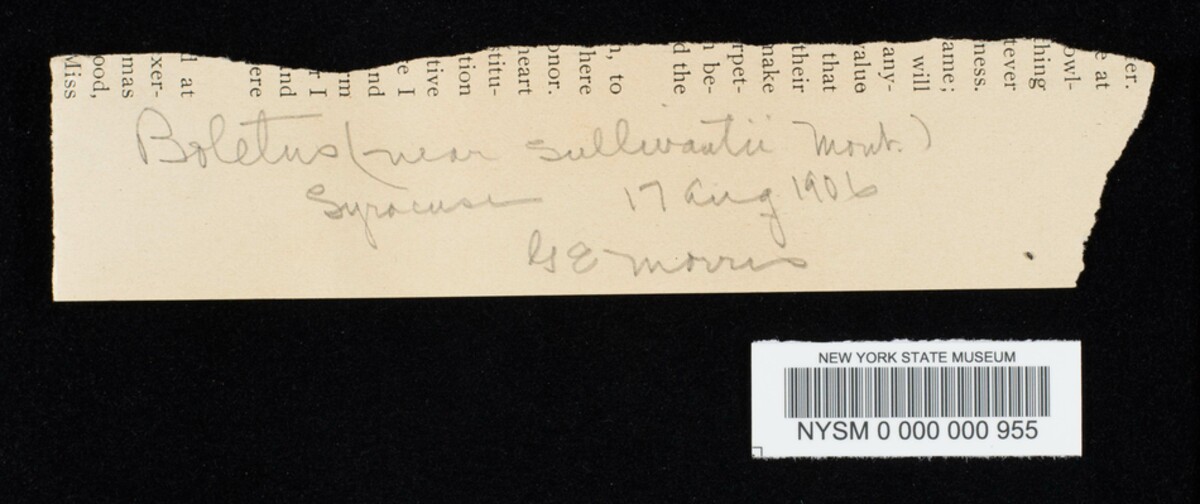 Boletus (near Sullivantii Mont.)
Syracuse 17 Aug 1906
G E Morris
er.
e at
owl-
hing
tever
ness.
ame;
will
any-
value
that
their
make
rpet-
n be-
d the
n, to
here
onor.
heart
stitu-
tion
tive
e I
and
rm
r I
and
ere
d at
exer-
mas
ood,
Miss
NEW YORK STATE MUSEUM
NYSM 0 000 000 955